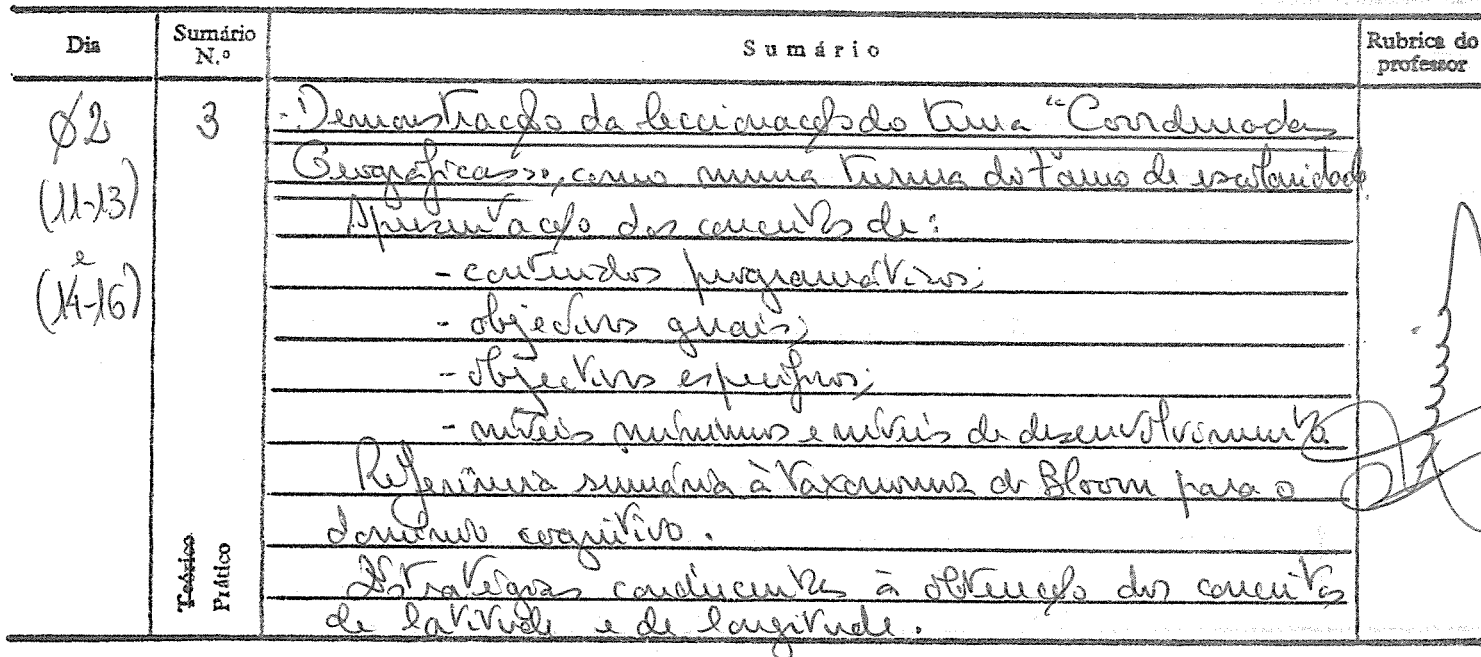 Dia
Sumário N.º
Sumário
Rubrica do professor
02
(11-13)
e
(14-16)
3
Teórico
Prático
- Demonstração da leccionação do tema "Coordenadas
Geográficas", como numa turma do 7º ano de escolaridade
Apresentação dos conceitos de:
- conteúdos programáticos;
- objectivos gerais;
- objectivos específicos;
- níveis mínimos e níveis de desenvolvimento
Referência sumária à taxonomia de Bloom para o
domínio cognitivo.
Estratégias conducentes à obtenção dos conceitos
de latitude e de longitude.